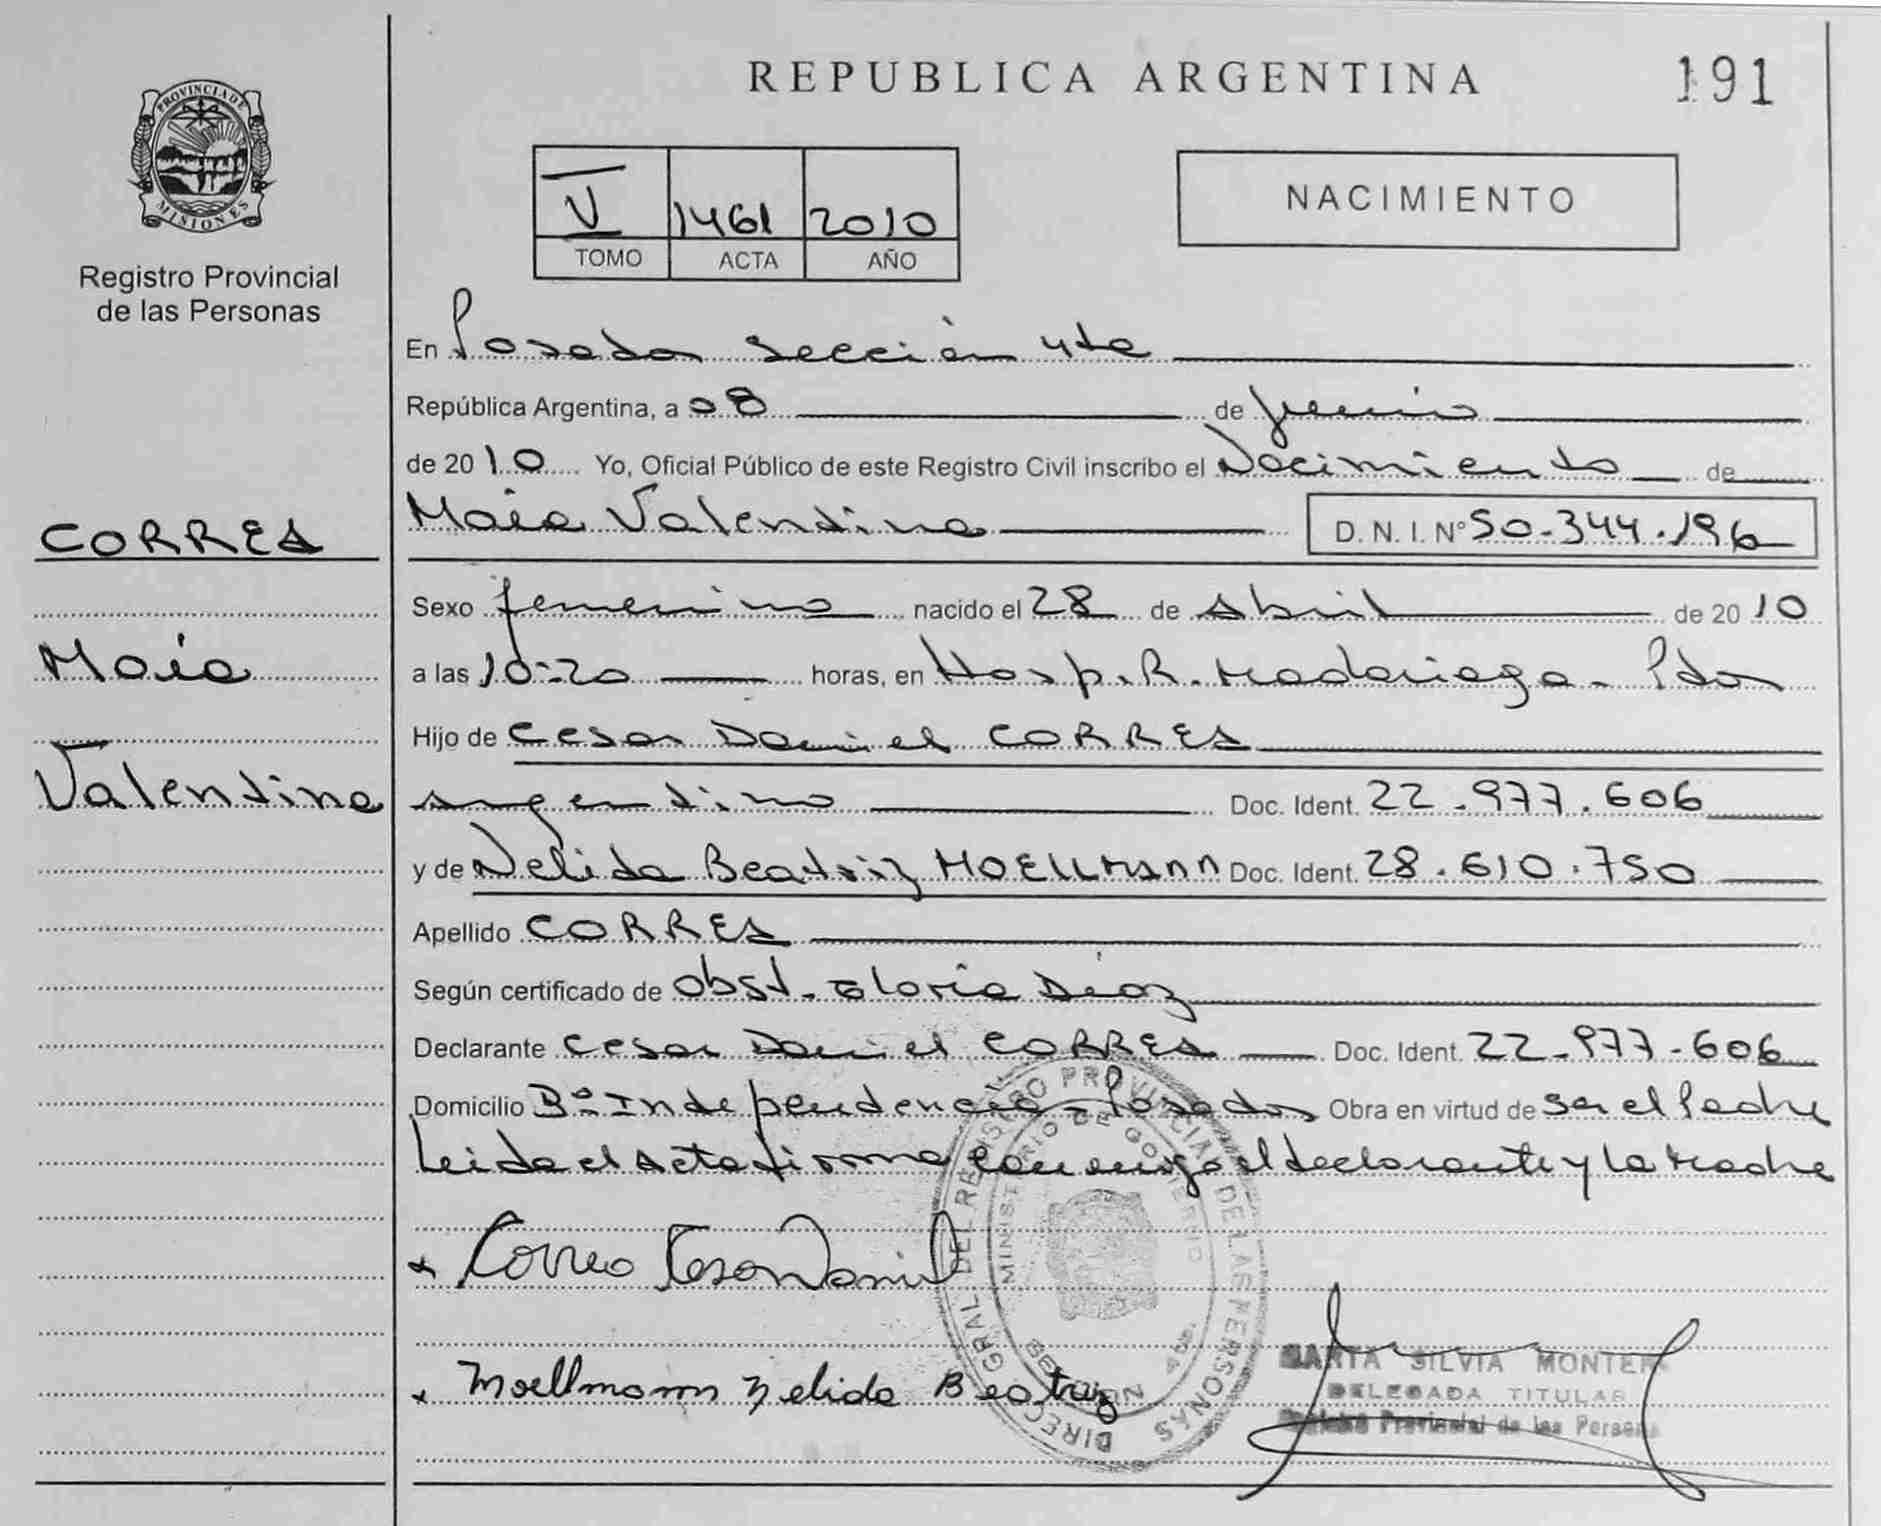 REPUBLICA ARGENTINA
191
PROVINCIA DE
MISIONES
Registro Provincial
de las Personas
V 1461 2010
TOMO ACTA AÑO
NACIMIENTO
En Posadas sección 4ta
República Argentina, a 08 de junio
de 2010 Yo, Oficial Público de este Registro Civil inscribo el Nacimiento de
Maía Valentina D. N. I. N° 50.344.196
CORREA
Maía
Valentina
Sexo femenino nacido el 28 de Abril de 2010
a las 10:20 horas, en Hosp. R. Madariaga - Pdas
Hijo de Cesar Daniel CORREA
argentino Doc. Ident. 22.977.606
y de Nelida Beatriz MOELLMANN Doc. Ident. 28.610.750
Apellido CORREA
Según certificado de Obst. Gloria Diaz
Declarante Cesar Daniel CORREA Doc. Ident. 22-977-606
Domicilio Bº Independencia - Posadas Obra en virtud de ser el Padre
Leida el Acta firma conmigo el declarante y la Madre
Correa Cesar Daniel
Moellmann Nelida Beatriz
DIREC. GRAL. DEL REGISTRO PROVINCIAL DE LAS PERSONAS
MINISTERIO DE GOBIERNO
SILVIA
DELEGADA TITULAR
Provincial de las Persona